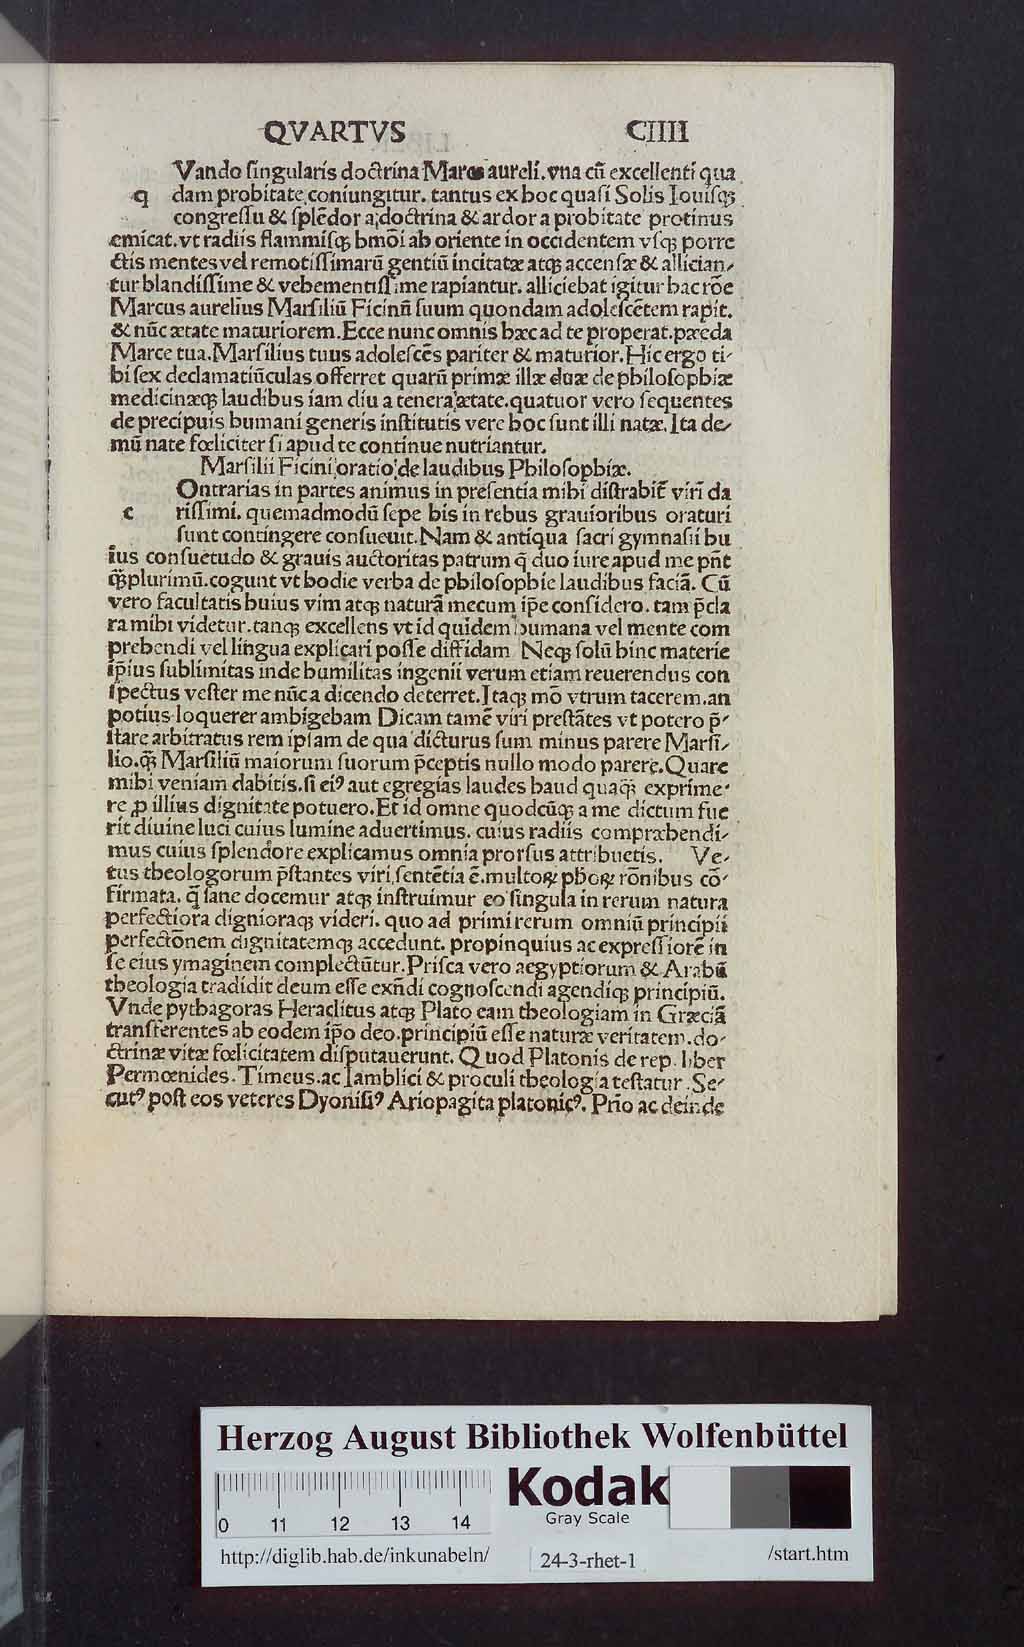 QVARTVS CIIII
Vando ſingularis doctrina Marce aureli. vna cū excellenti qua
q dam probitate coniungitur. tantus ex hoc quaſi Solis Iouiſq;
congreſſu & ſplēdor a doctrina & ardor a probitate protinus
emicat. vt radiis flammiſq; hmōi ab oriente in occidentem vſq; porre
ctis mentes vel remotiſſimarū gentiū incitatæ atq; accenſæ & allician-
tur blandiſſime & vehementiſſime rapiantur. alliciebat igitur hac rōe
Marcus aurelius Marſiliū Ficinū ſuum quondam adoleſcētem rapit.
& nūc ætate maturiorem. Ecce nunc omnis hæc ad te properat. præda
Marce tua. Marſilius tuus adoleſcēs pariter & maturior. Hic ergo ti-
bi ſex declamatiūculas offerret quarū primæ illæ duæ de philoſophiæ
medicinæq; laudibus iam diu a tenera ætate. quatuor vero ſequentes
de precipuis humani generis inſtitutis vere hoc ſunt illi natæ. Ita de-
mū nate fœliciter ſi apud te continue nutriantur.
Marſilii Ficini oratio de laudibus Philoſophiæ.
Ontrarias in partes animus in preſentia mihi diſtrahit̄ viri cla
c riſſimi. quemadmodū ſepe his in rebus grauioribus oraturi
ſunt contingere conſueuit. Nam & antiqua ſacri gymnaſii hu
ius conſuetudo & grauis auctoritas patrum q̄ duo iure apud me pn̄t
q̄ꝫplurimū. cogunt vt hodie verba de philoſophie laudibus faciā. Cū
vero facultatis huius vim atq; naturā mecum ip̄e conſidero. tam p̄cla
ra mihi videtur. tanq; excellens vt id quidem humana vel mente com
prehendi vel lingua explicari poſſe diffidam Neq; ſolū hinc materie
ip̄ius ſublimitas inde humilitas ingenii verum etiam reuerendus con
ſpectus veſter me nūc a dicendo deterret. Itaq; mō vtrum tacerem. an
potius loquerer ambigebam Dicam tamē viri preſtātes vt potero p̄-
ſtare arbitratus rem ipſam de qua dicturus ſum minus parere Marſi-
lio. q̄ꝫ Marſiliū maiorum ſuorum p̄ceptis nullo modo parere. Quare
mihi veniam dabitis. ſi eiꝰ aut egregias laudes haud quaq̄ꝫ exprime-
re ꝓ illius dignitate potuero. Et id omne quodcūq; a me dictum fue
rit diuine luci cuius lumine aduertimus. cuius radiis comprahendi-
mus cuius ſplendore explicamus omnia prorſus attribuetis. Ve-
tus theologorum p̄ſtantes viri ſentētia ē. multoꝝ ph̄oꝝ rōnibus cō-
firmata. q̄ ſane docemur atq; inſtruimur eo ſingula in rerum natura
perfectiora digniora q; videri. quo ad primi rerum omniū principii
perfectōnem dignitatemq; accedunt. propinquius ac expreſſiorē in
ſe eius ymaginem complectūtur. Priſca vero aegyptiorum & Arabū
theologia tradidit deum eſſe exn̄di cognoſcendi agendiq; principiū.
Vnde pythagoras Heraclitus atq; Plato eam theologiam in Græciā
transferentes ab eodem ip̄o deo. principiū eſſe naturæ veritatem. do-
ctrinæ vitæ fœlicitatem diſputauerunt. Quod Platonis de rep. liber
Permœnides. Timeus. ac Iamblici & proculi theologia teſtatur. Se-
cutꝰ poſt eos veteres Dyoniſiꝰ Ariopagita platonicꝰ. Prīo ac deinde
Herzog August Bibliothek Wolfenbüttel
Kodak
Gray Scale
0 11 12 13 14
http://diglib.hab.de/inkunabeln/ 24-3-rhet-1 /start.htm